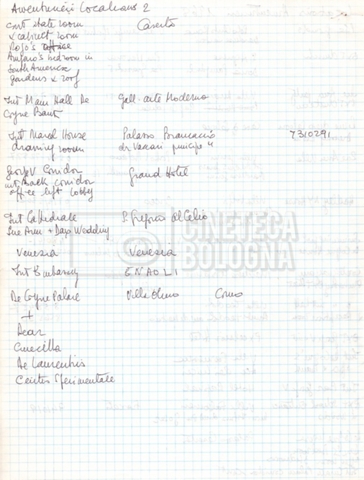 Adventurers Locations 2
Int State room Caserta
& cabinet room
Rojo's office
Amparo's bedroom in
South America
gardens & roof
Int Main Hall De Gall. arte Moderna
Coyne Bank
Int Marcel House Palazzo Brancaccio 7310291
drawing room
George V Corridor Grand Hotel
int back corridor
office lift lobby
Int Cathedrale S. Gregorio al Celio
Lue Arm + Dax Wedding
Venezia Venezia
Int Embassy ENAOLI
De Coyne Palace Villa Olmo Como
+
Dear
Cinecitta
De Laurentiis
Centro Sperimentale
CINETECA
BOLOGNA